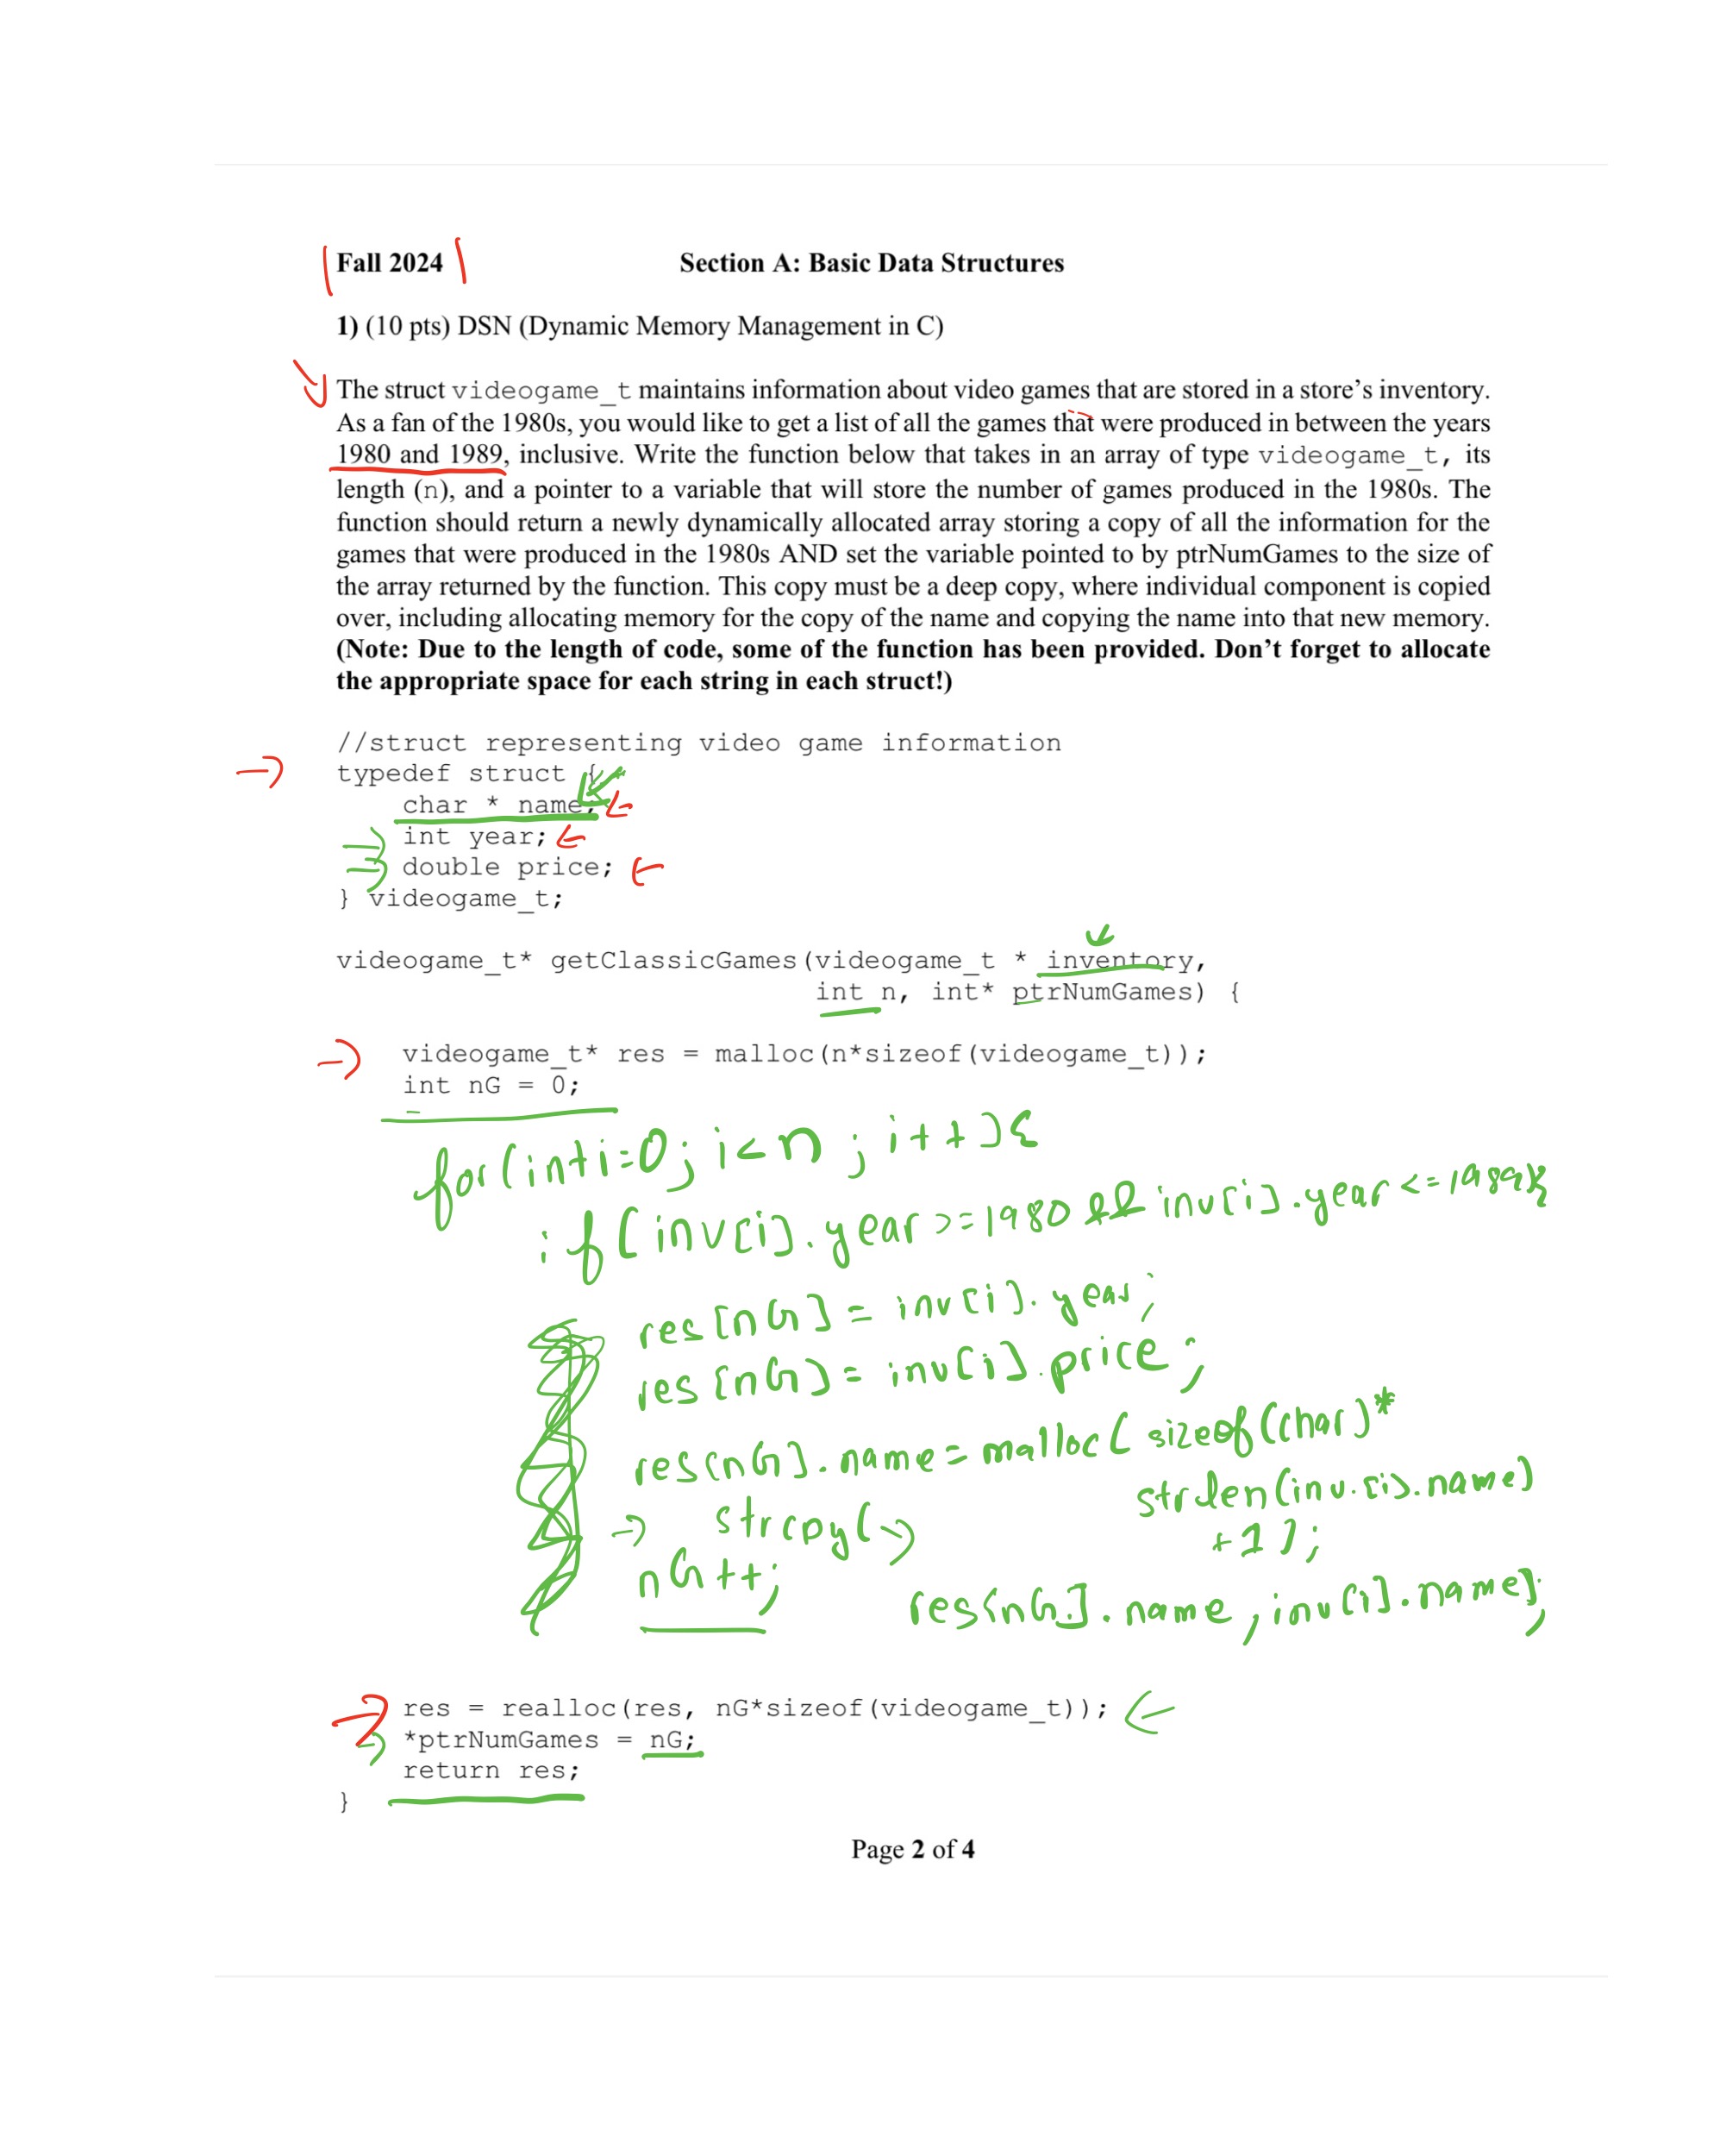 Fall 2024 Section A: Basic Data Structures
1) (10 pts) DSN (Dynamic Memory Management in C)
The struct videogame_t maintains information about video games that are stored in a store's inventory.
As a fan of the 1980s, you would like to get a list of all the games that were produced in between the years
1980 and 1989, inclusive. Write the function below that takes in an array of type videogame_t, its
length (n), and a pointer to a variable that will store the number of games produced in the 1980s. The
function should return a newly dynamically allocated array storing a copy of all the information for the
games that were produced in the 1980s AND set the variable pointed to by ptrNumGames to the size of
the array returned by the function. This copy must be a deep copy, where individual component is copied
over, including allocating memory for the copy of the name and copying the name into that new memory.
(Note: Due to the length of code, some of the function has been provided. Don't forget to allocate
the appropriate space for each string in each struct!)
//struct representing video game information
typedef struct {
char * name;
int year;
double price;
} videogame_t;
videogame_t* getClassicGames(videogame_t * inventory,
int n, int* ptrNumGames) {
videogame_t* res = malloc(n*sizeof(videogame_t));
int nG = 0;
for(int i=0; i<n; i++){
if(inv[i].year>=1980 && inv[i].year<=1989){
res[nG] = inv[i].year;
res[nG] = inv[i].price;
res[nG].name=malloc(sizeof(char)*
strlen(inv.[i].name)
+1);
strcpy(
nG++;
res[nG].name, inv[i].name);
res = realloc(res, nG*sizeof(videogame_t));
*ptrNumGames = nG;
return res;
}
Page 2 of 4